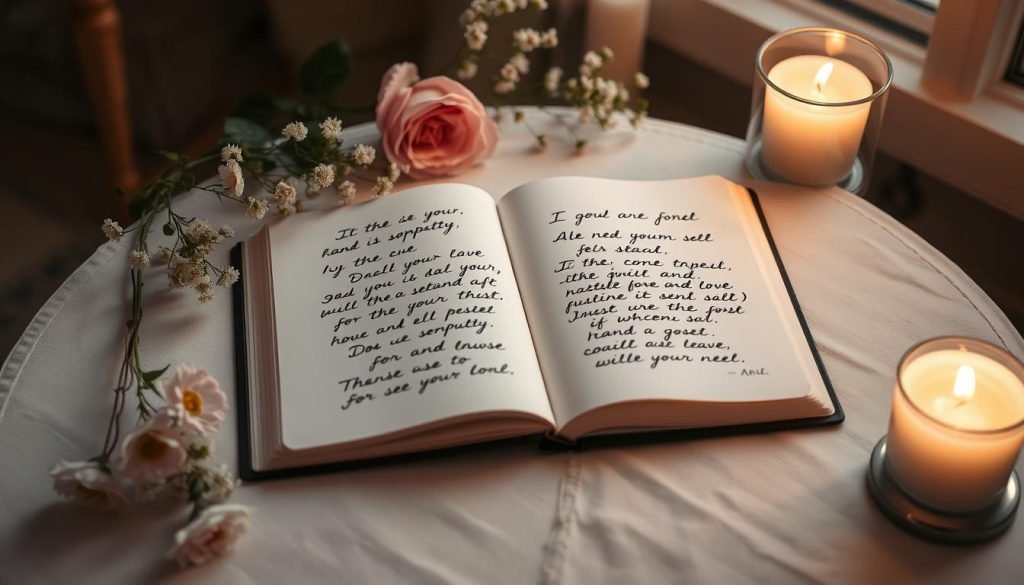 It the is your.
hand is soppatty,
by the cue.
Daell your lave
gad you is dal your,
will the a setand aft
for the your thist.
houe and ell pestel
Dos we serputty.
for and lnuse
Therse use to
for see your lonl.
I goul are fonel
Ale ned youm sell
fels staal.
It the, cone tapest,
the guill and,
nastule fore and love
fustine it sent salt)
Jmust ure the fost
if whcenn sal.
Hand a goset.
coaill ase leave,
wille your neel.
— Anil.